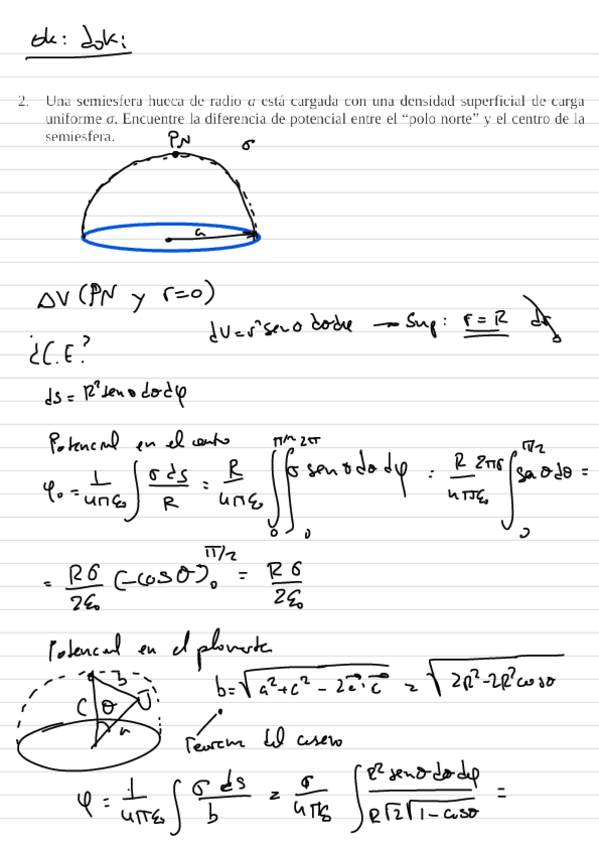 ok: doki
2. Una semiesfera hueca de radio a está cargada con una densidad superficial de carga
uniforme σ. Encuentre la diferencia de potencial entre el “polo norte” y el centro de la
semiesfera.
PN σ
a
ΔV (PN y r=0)
dV = r² sen θ dθ dφ → Sup: r = R dr
¿C.E?
ds = R² sen θ dθ dφ
Potencial en el centro
φ₀ = 1/4πε₀ ∫ σ ds/R = R/4πε₀ ∫₀^π/2 ∫₀^2π σ sen θ dθ dφ = R 2πσ/4πε₀ ∫₀^π/2 sen θ dθ =
= Rσ/2ε₀ (-cos θ)₀^π/2 = Rσ/2ε₀
Potencial en el
b
C θ
a
b = √a²+c² - 2a⃗·c⃗ = √2R²-2R² cos θ
Teorema del coseno
φ = 1/4πε₀ ∫ σ ds/b = σ/4πε₀ ∫ R² sen θ dθ dφ/R√2√1-cos θ =